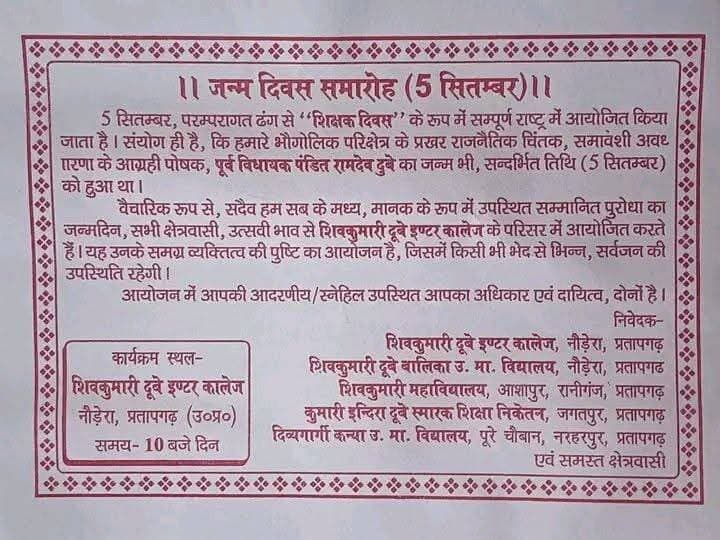 ।। जन्म दिवस समारोह (5 सितम्बर)।।
5 सितम्बर, परम्परागत ढंग से "शिक्षक दिवस" के रूप में सम्पूर्ण राष्ट्र में आयोजित किया
जाता है। संयोग ही है, कि हमारे भौगोलिक परिक्षेत्र के प्रखर राजनैतिक चिंतक, समावंशी अवध
ारणा के आग्रही पोषक, पूर्व विधायक पंडित रामदेव दुबे का जन्म भी, सन्दर्भित तिथि (5 सितम्बर)
को हुआ था।
वैचारिक रूप से, सदैव हम सब के मध्य, मानक के रूप में उपस्थित सम्मानित पुरोधा का
जन्मदिन, सभी क्षेत्रवासी, उत्सवी भाव से शिवकुमारी दूबे इण्टर कालेज के परिसर में आयोजित करते
हैं। यह उनके समग्र व्यक्तित्व की पुष्टि का आयोजन है, जिसमें किसी भी भेद से भिन्न, सर्वजन की
उपस्थिति रहेगी।
आयोजन में आपकी आदरणीय/स्नेहिल उपस्थित आपका अधिकार एवं दायित्व, दोनों है।
निवेदक-
शिवकुमारी दूबे इण्टर कालेज, नौड़ेरा, प्रतापगढ़
शिवकुमारी दूबे बालिका उ. मा. विद्यालय, नौड़ेरा, प्रतापगढ
शिवकुमारी महाविद्यालय, आशापुर, रानीगंज, प्रतापगढ
कुमारी इन्दिरा दूबे स्मारक शिक्षा निकेतन, जगतपुर, प्रतापगढ़
दिव्यगार्गी कन्या उ. मा. विद्यालय, पूरे चौबान, नरहरपुर, प्रतापगढ़
एवं समस्त क्षेत्रवासी
कार्यक्रम स्थल-
शिवकुमारी दूबे इण्टर कालेज
नौड़ेरा, प्रतापगढ़ (उ०प्र०)
समय- 10 बजे दिन